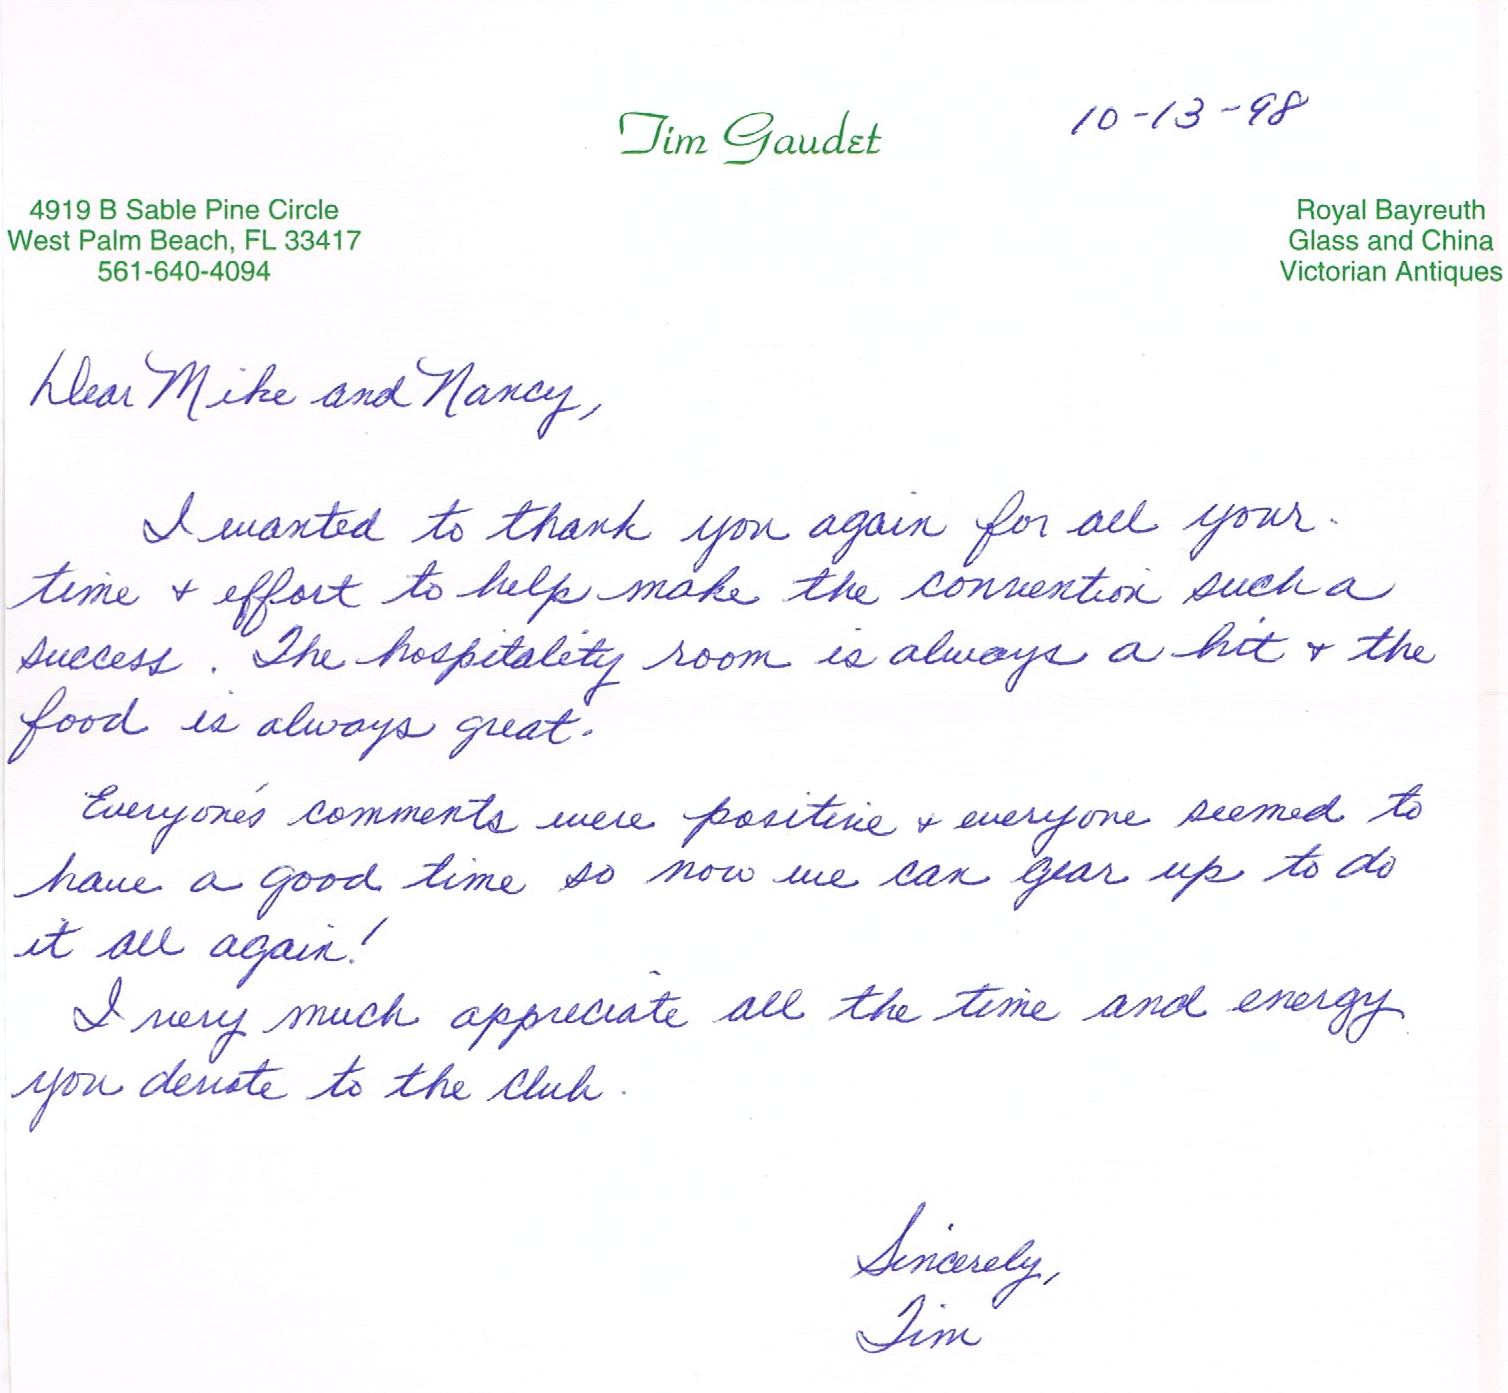 Tim Gaudet
10-13-98
4919 B Sable Pine Circle
West Palm Beach, FL 33417
561-640-4094
Royal Bayreuth
Glass and China
Victorian Antiques
Dear Mike and Nancy,
I wanted to thank you again for all your
time + effort to help make the convention such a
success. The hospitality room is always a hit + the
food is always great.
Everyone's comments were positive + everyone seemed to
have a good time so now we can gear up to do
it all again!
I very much appreciate all the time and energy
you devote to the club.
Sincerely,
Tim